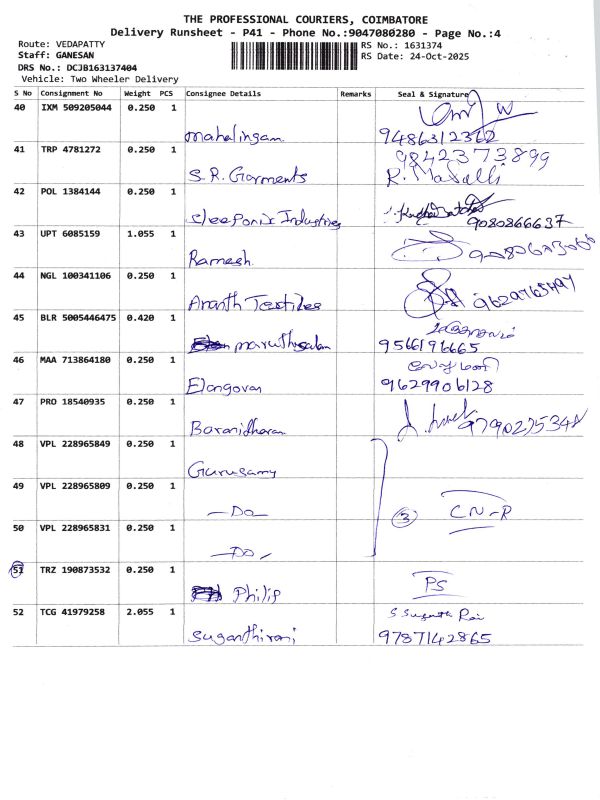 THE PROFESSIONAL COURIERS, COIMBATORE
Delivery Runsheet - P41 - Phone No.:9047080280 - Page No.:4
Route: VEDAPATTY
Staff: GANESAN
DRS No.: DCJB163137404
Vehicle: Two Wheeler Delivery
RS No.: 1631374
RS Date: 24-Oct-2025
S No Consignment No Weight PCS Consignee Details Remarks Seal & Signature
40 IXM 509205044 0.250 1
Mahalingam 9486312362
41 TRP 4781272 0.250 1 9842373899
S.R. Garments
42 POL 1384144 0.250 1
Sleeponix Industries 9080866637
43 UPT 6085159 1.055 1
Ramesh
44 NGL 100341106 0.250 1
Ananth Textiles 9629765497
45 BLR 5005446475 0.420 1
maruthasalam 9566196665
46 MAA 713864180 0.250 1 வேலுமணி
Elangovan 9629906128
47 PRO 18540935 0.250 1
Baranidharan 9790275348
48 VPL 228965849 0.250 1
Gurusamy
49 VPL 228965809 0.250 1
-Do- 3 CN-R
50 VPL 228965831 0.250 1
-Do-
51 TRZ 190873532 0.250 1
Philip PS
52 TCG 41979258 2.055 1 S Suganth Rai
Suganthirani 9787142865